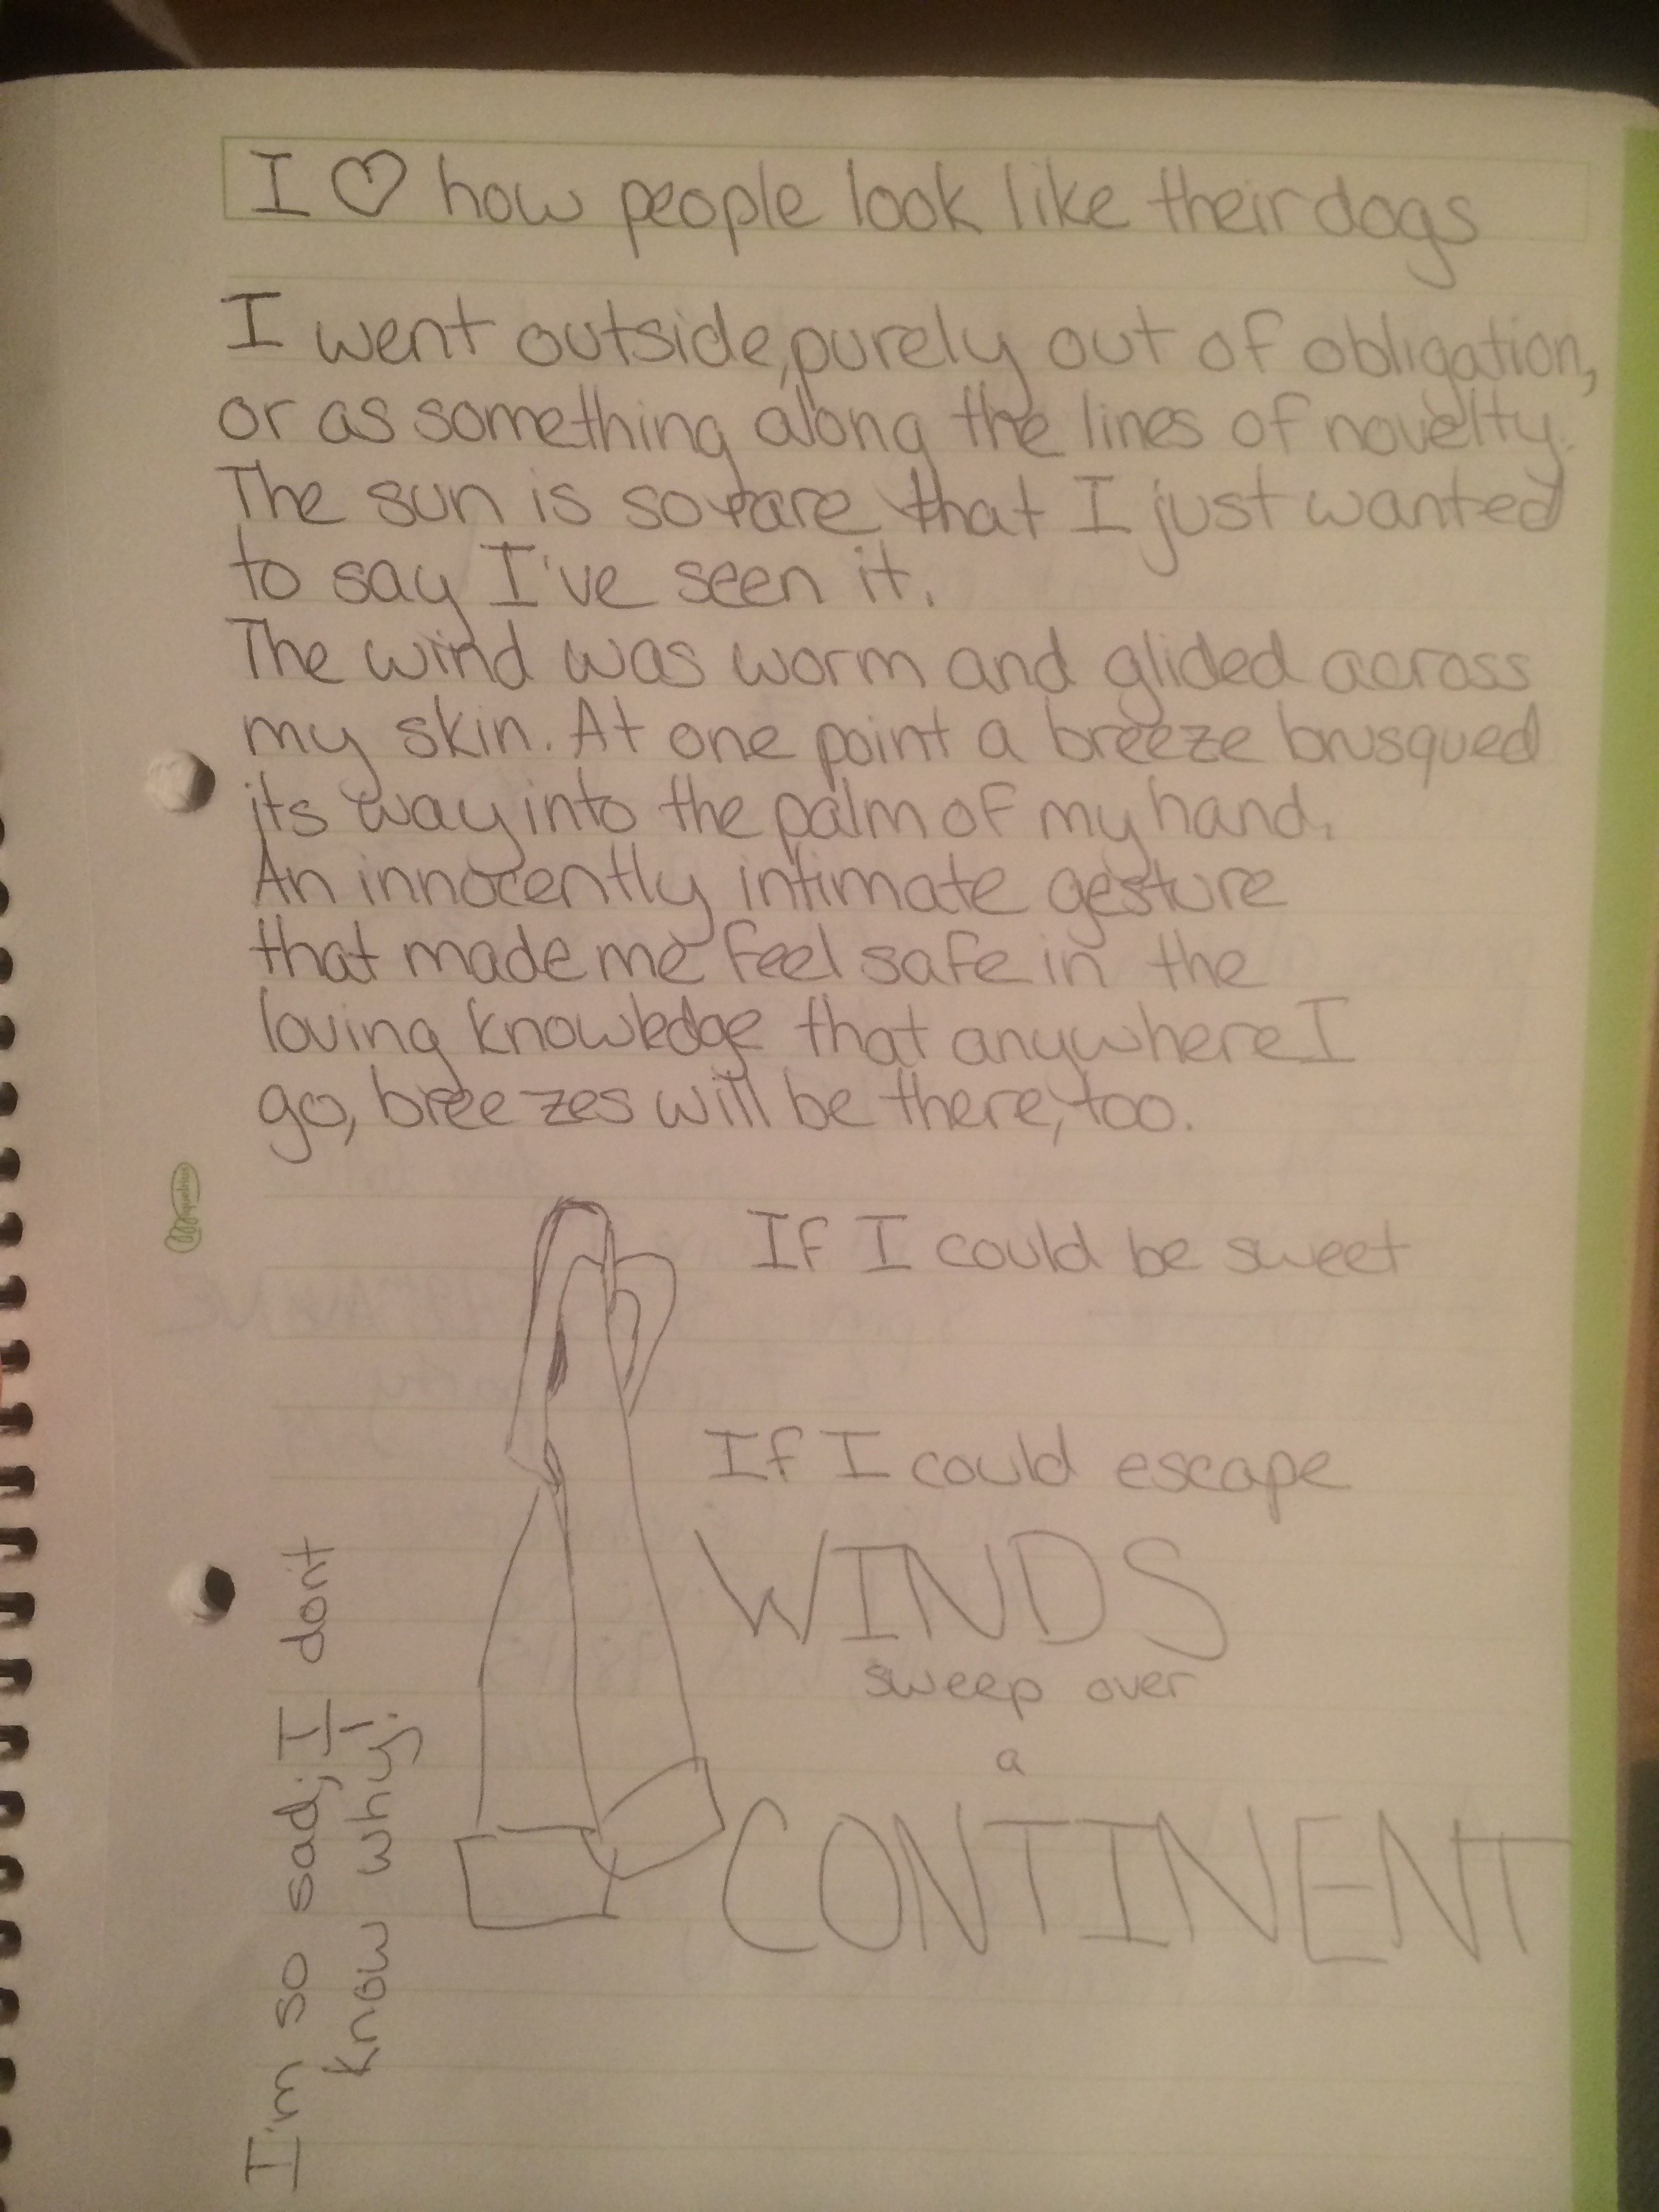 I ♡ how people look like their dogs
I went outside, purely out of obligation,
or as something along the lines of novelty.
The sun is so rare that I just wanted
to say I've seen it.
The wind was worm and glided across
my skin. At one point a breeze brusqued
its way into the palm of my hand.
An innocently intimate gesture
that made me feel safe in the
loving knowledge that anywhere I
go, breezes will be there, too.
If I could be sweet
If I could escape
WINDS
sweep over
a
CONTINENT
I'm so sad; I don't
know why.